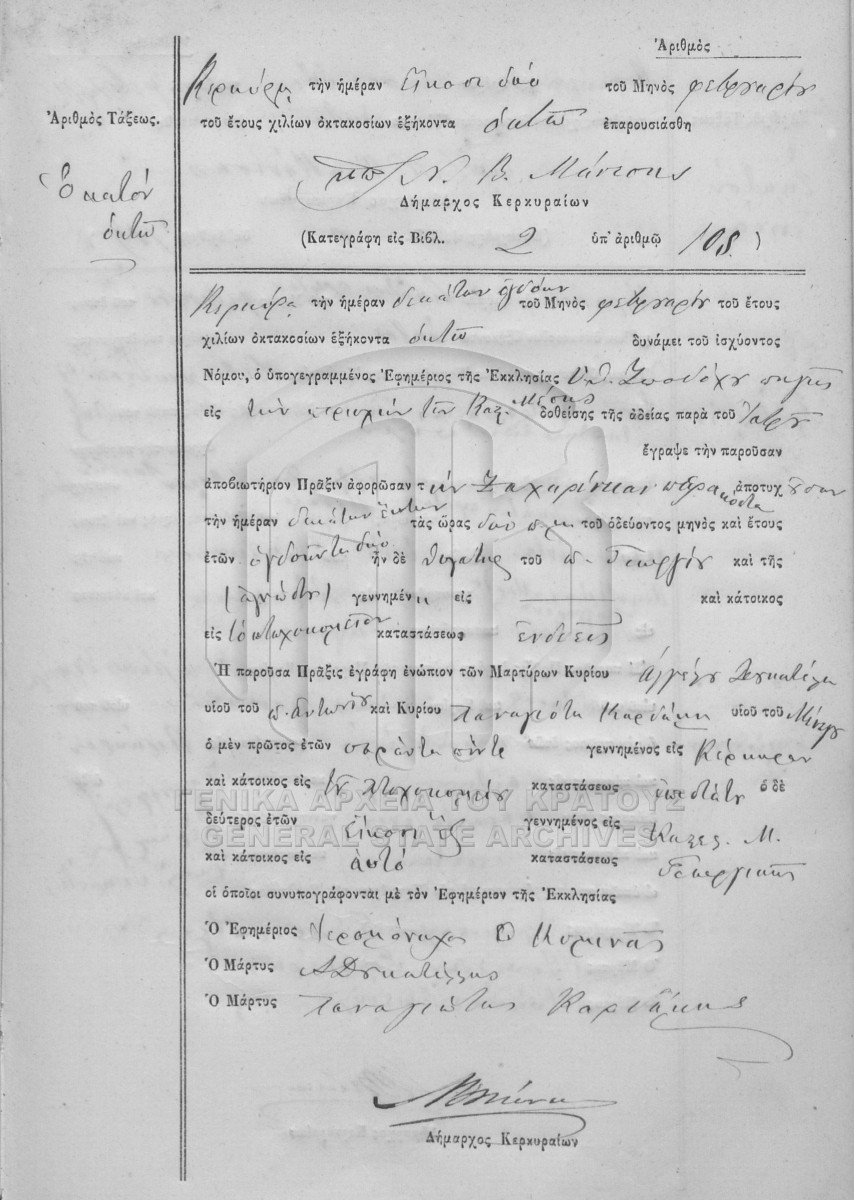 Ἀριθμὸς
Ἀριθμὸς Τάξεως.
Ἑκατόν
ὀκτὼ
Κερκύρᾳ τὴν ἡμέραν εἴκοσι δύο τοῦ Μηνὸς φεβρουαρίου
τοῦ ἔτους χιλίων ὀκτακοσίων ἑξήκοντα ὀκτὼ ἐπαρουσιάσθη
Ν. Β. Μάνεσης
Δήμαρχος Κερκυραίων
(Κατεγράφη εἰς Βιβλ. 2 ὑπ᾽ ἀριθμῷ 108)
Κερκύρᾳ τὴν ἡμέραν δεκάτην ὀγδόην τοῦ Μηνὸς φεβρουαρίου τοῦ ἔτους
χιλίων ὀκτακοσίων ἑξήκοντα ὀκτὼ δυνάμει τοῦ ἰσχύοντος
Νόμου, ὁ ὑπογεγραμμένος Ἐφημέριος τῆς Ἐκκλησίας Ζωοδόχου πηγῆς
εἰς τὴν περιοχὴν τῶν Καστ. Μέσης δοθείσης τῆς ἀδείας παρὰ τοῦ Ἰατροῦ
ἔγραψε τὴν παροῦσαν
ἀποβιωτήριον Πρᾶξιν ἀφορῶσαν τὴν ἀποτυχοῦσαν
τὴν ἡμέραν δεκάτην ἕκτην τὰς ὥρας δύο τοῦ ὁδεύοντος μηνὸς καὶ ἔτους
ἐτῶν ὀγδοῆντα δύο ἦν δὲ θυγάτηρ τοῦ π. Γεωργίου καὶ τῆς
(ἀγνώστου) γεννημένη εἰς καὶ κάτοικος
εἰς τὸ πτωχοκομεῖον καταστάσεως ἐνδεεῖς
Ἡ παροῦσα Πρᾶξις ἐγράφη ἐνώπιον τῶν Μαρτύρων Κυρίου Ἀγγέλου Δουκατέλη
υἱοῦ τοῦ π. Ἀντωνίου καὶ Κυρίου Παναγιότα Καρδάκη υἱοῦ τοῦ
ὁ μὲν πρῶτος ἐτῶν σαράντα πέντε γεννημένος εἰς Κέρκυραν
καὶ κάτοικος εἰς πτωχοκομείου καταστάσεως ὁ δὲ
δεύτερος ἐτῶν εἴκοσι ἓξ γεννημένος εἰς Μ.
καὶ κάτοικος εἰς αὐτὸ καταστάσεως Γεωργικῆς
οἱ ὁποῖοι συνυπογράφονται μὲ τὸν Ἐφημέριον τῆς Ἐκκλησίας
Ὁ Ἐφημέριος Ἱερομόναχος
Ὁ Μάρτυς Α Δουκατέλης
Ὁ Μάρτυς Παναγιώτης Καρδάκης
Δήμαρχος Κερκυραίων
ΓΕΝΙΚΑ ΑΡΧΕΙΑ ΤΟΥ ΚΡΑΤΟΥΣ
GENERAL STATE ARCHIVES